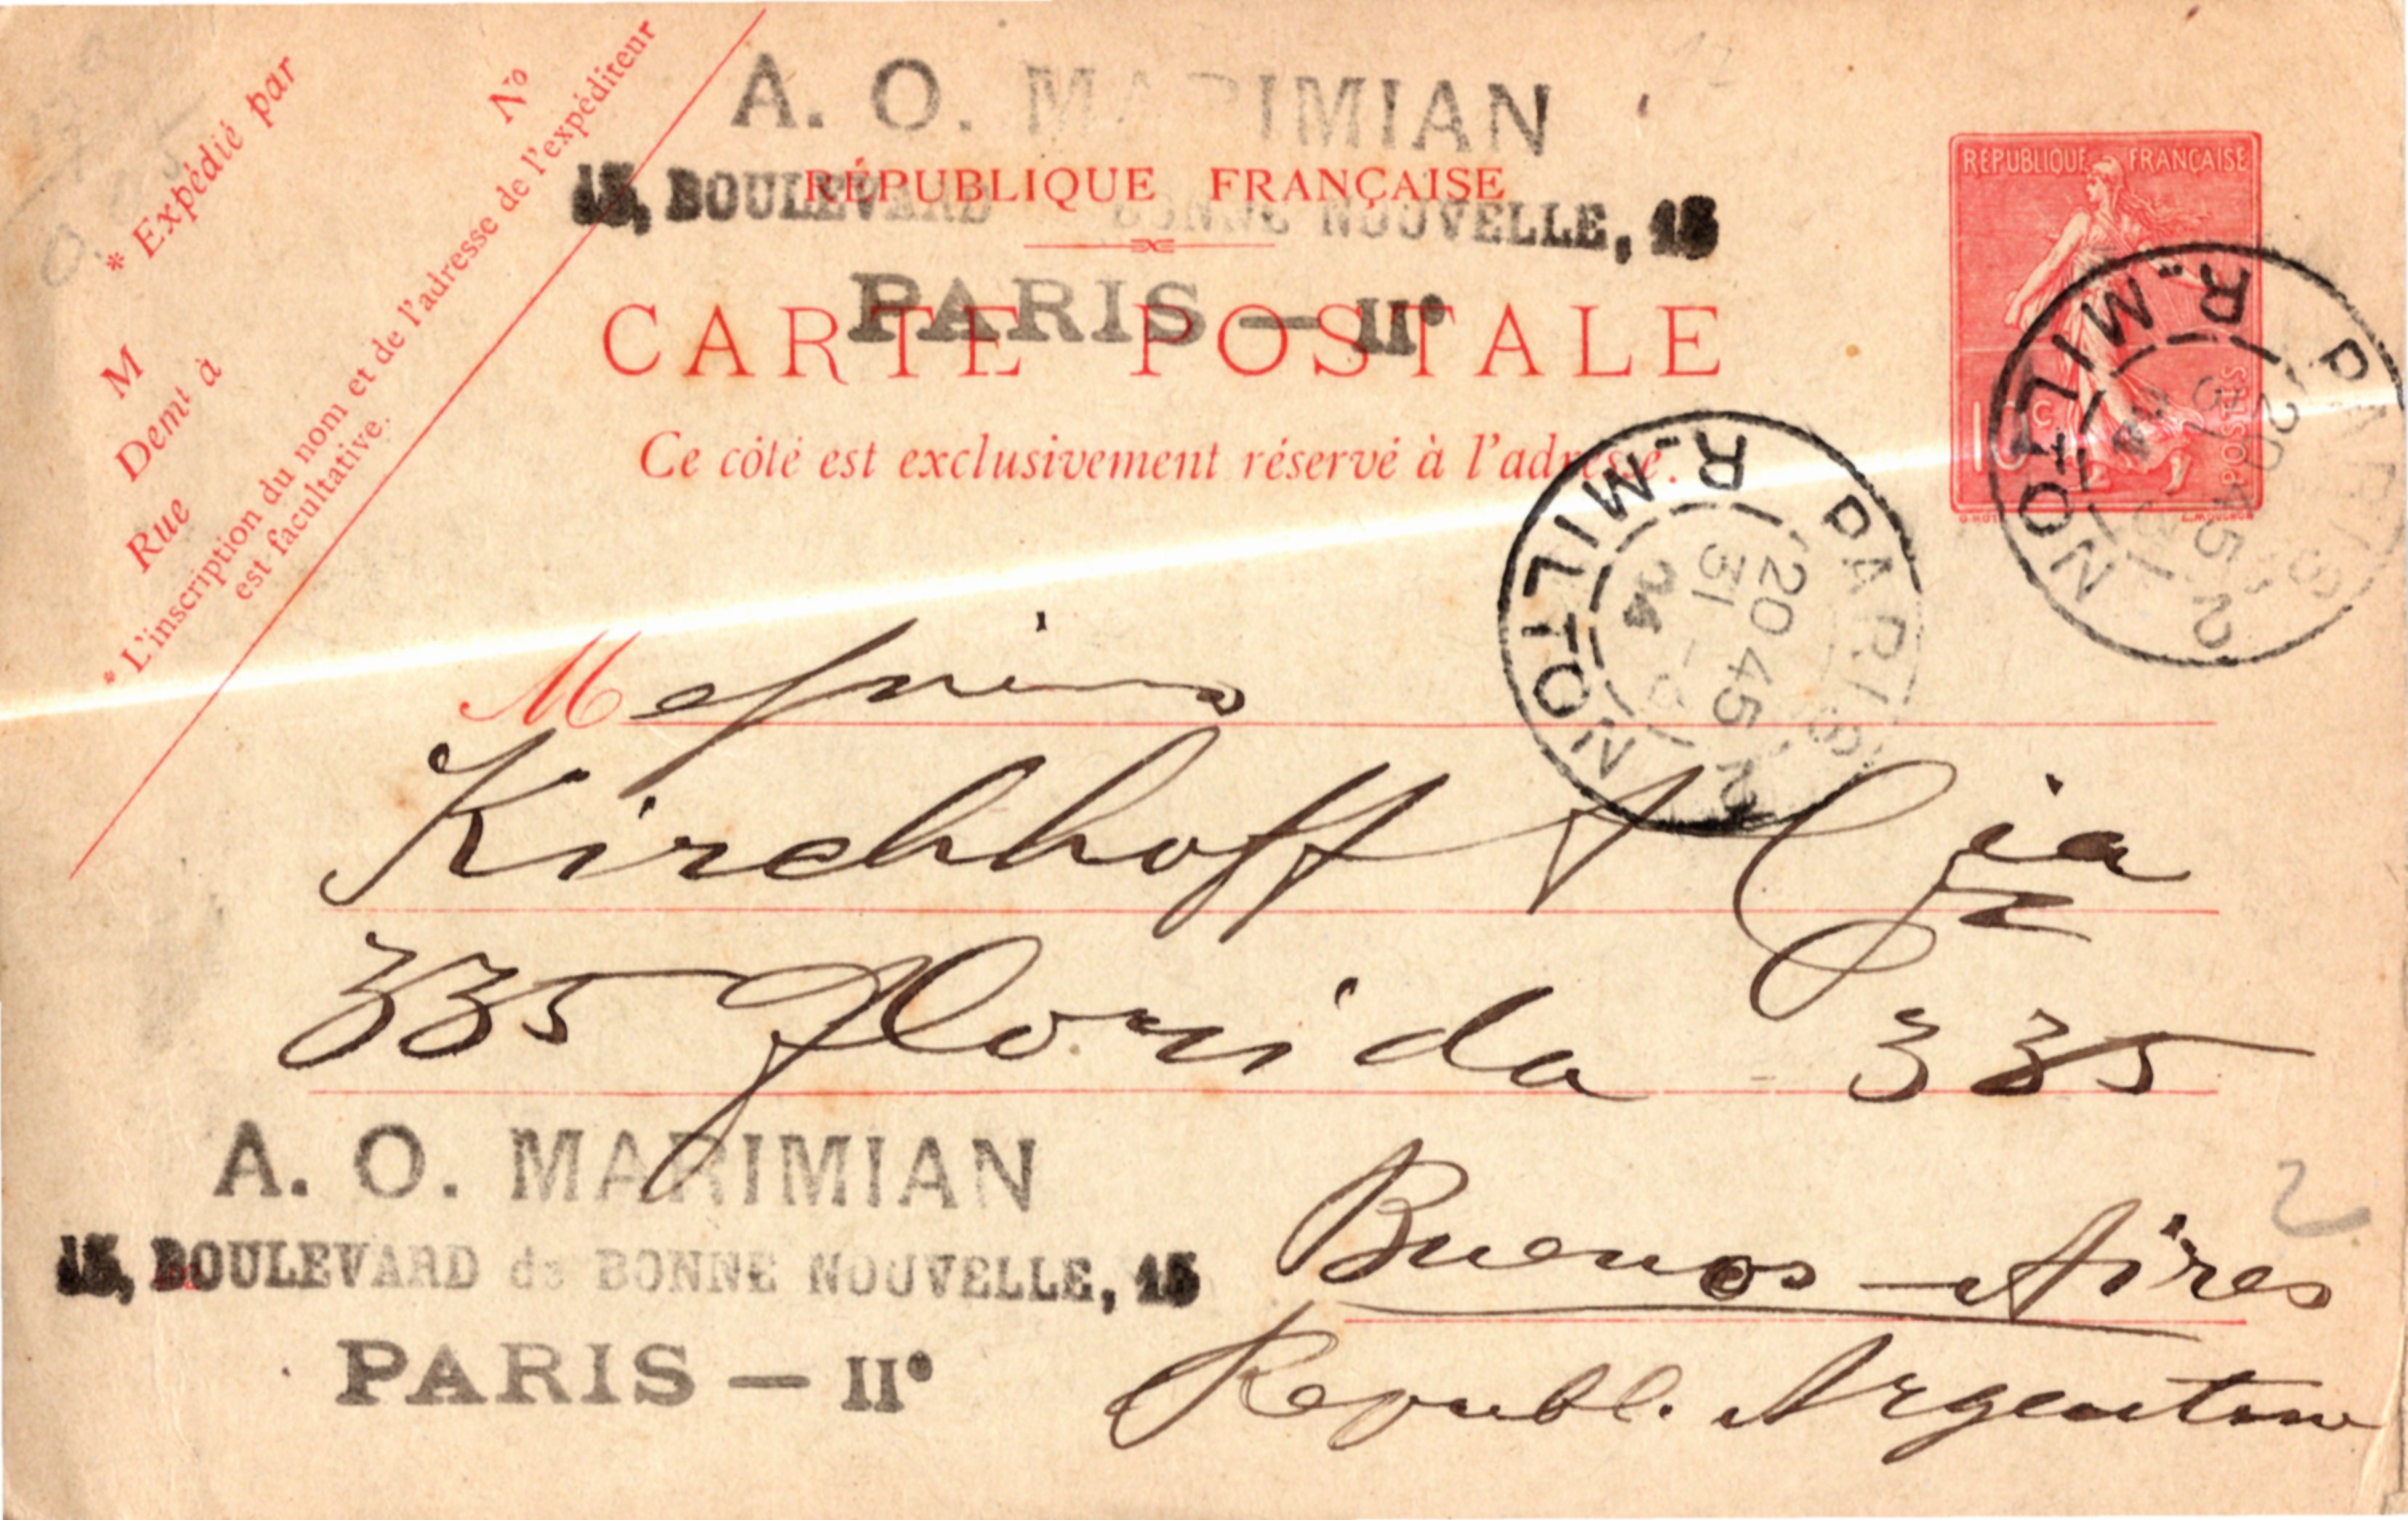 A. O. MARIMIAN
15, BOULEVARD BONNE NOUVELLE, 15
PARIS — IIe
RÉPUBLIQUE FRANÇAISE
CARTE POSTALE
Ce côté est exclusivement réservé à l'adresse.
* Expédié par
No
M
Demt à
Rue
* L'inscription du nom et de l'adresse de l'expéditeur
est facultative.
REPUBLIQUE FRANÇAISE
10 c
POSTES
PARIS 18 R. MILTON
20 45
31
04
PARIS 18 R. MILTON
20 45
Messieurs
Kirchhoff & Cia
335 Florida 335
Buenos-Aires
Republ. Argentine
A. O. MARIMIAN
15, BOULEVARD de BONNE NOUVELLE, 15
PARIS — IIe
2